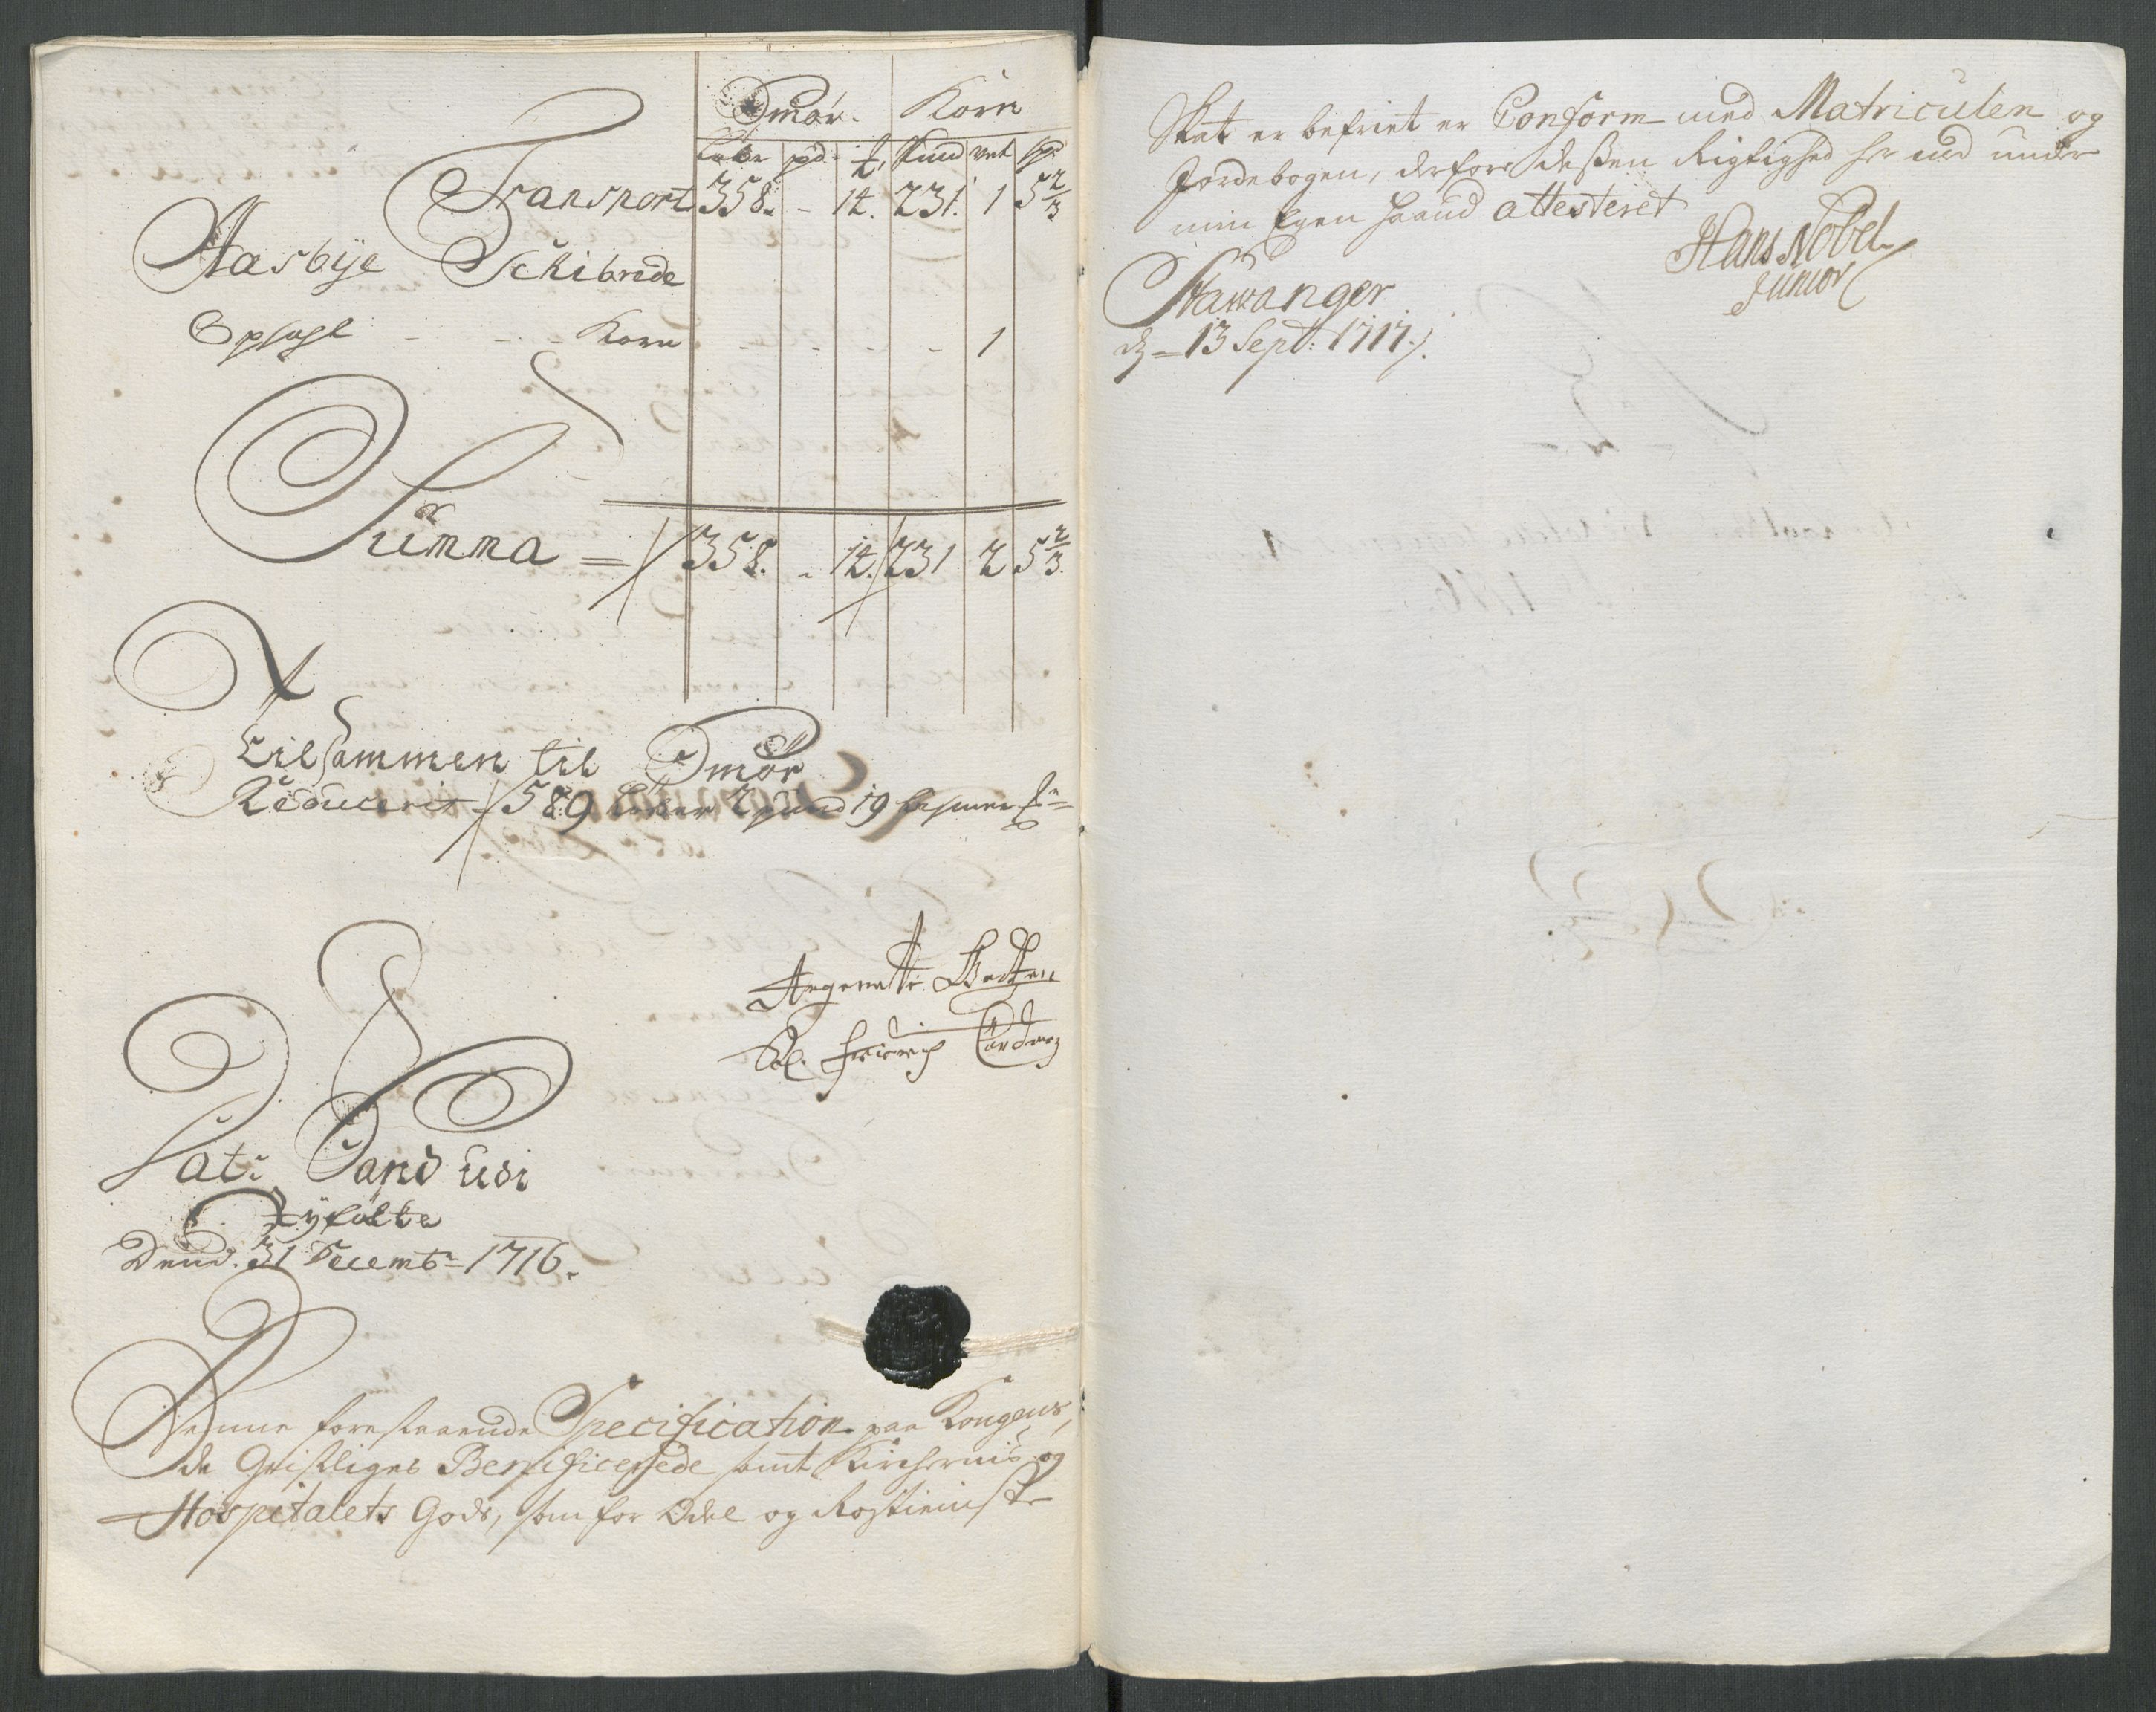 Smør. Korn
Løber pd. ℔. Pund vet sp.
Transport 358. - 14. 231. 1 5 2/3
Aasbÿe Schibrede
Opsahl - - - Korn - - - - 1
Summa = 358. - 14. 231 2 5 2/3.
Tilsammen til Smør
Reducerit 589 Løber 2 pund 19
Friderich
Lat: Sand udi
Rÿfölke
Dend. 31 Decembr 1716.
Denne forestaaende Specification paa Kongens,
de Geistliges Beneficerede samt Kirchernis og
Hospitalets Gods, som for Odel og Rostienist
Skat er befriet er Conform med Matriculen og
Jordebogen, derfore dessen Rigtighed her med under
min Egen Haand attesteret
Hans Nobel
Junior
Stawanger
d 13 Sept: 1717.